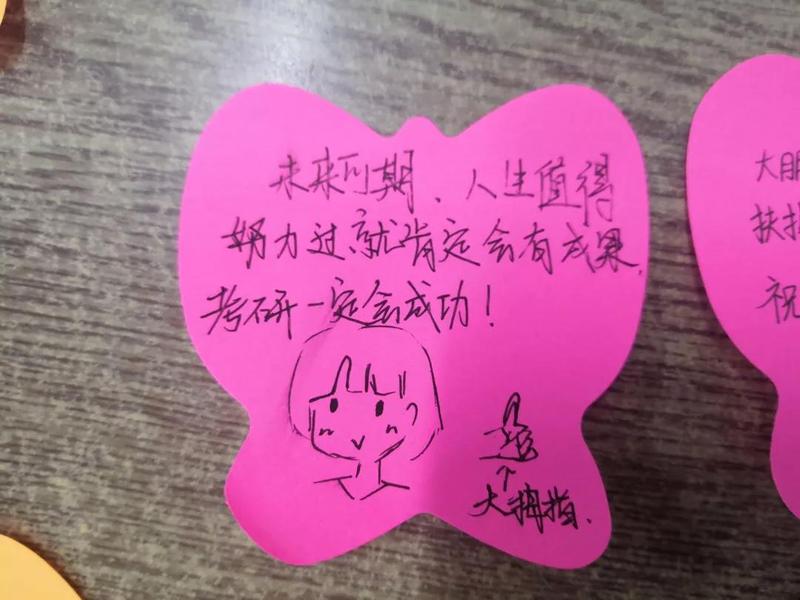 未来可期、人生值得
努力过就肯定会有成果.
考研一定会成功！
↑
大拇指.
大朋
扶摇
祝